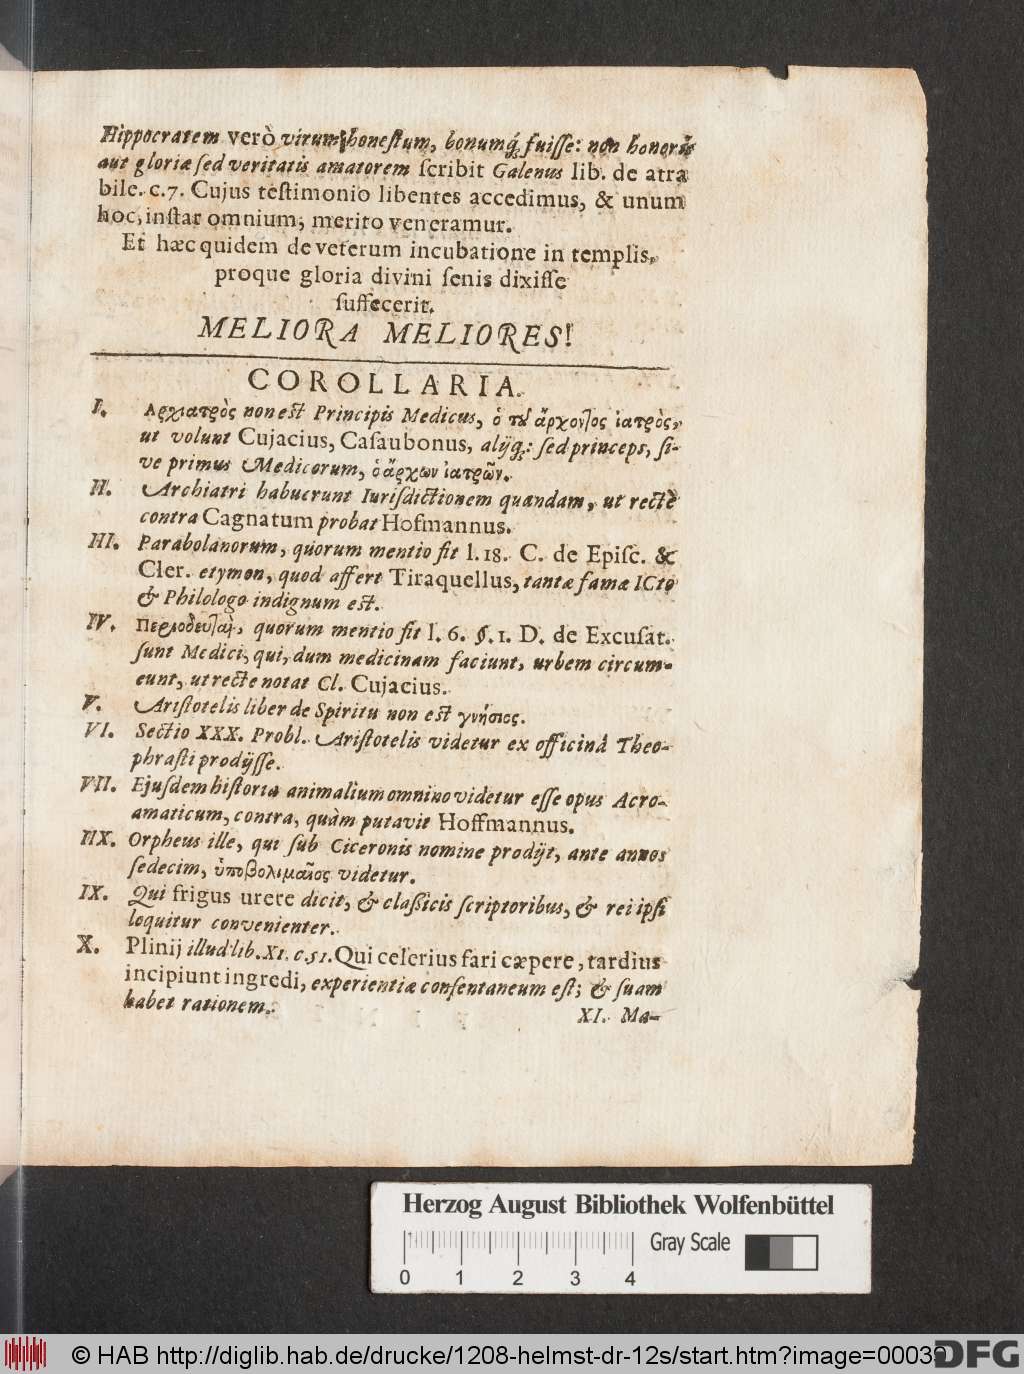 Hippocratem verò virum honestum, bonumq́; fuisse: non honoris
aut gloriæ sed veritatis amatorem scribit Galenus lib. de atra
bile. c. 7. Cujus testimonio libentes accedimus, & unum
hoc, instar omnium, merito veneramur.
Et hæc quidem de veterum incubatione in templis,
proque gloria divini senis dixisse
suffecerit.
MELIORA MELIORES!
COROLLARIA.
I. Αρχιατρὸς non est Principis Medicus, ὁ τῦ ἄρχοντος ἰατρὸς,
ut volunt Cujacius, Casaubonus, alijq́;: sed princeps, si-
ve primus Medicorum, ὁ ἄρχων ἰατρῶν.
II. Archiatri habuerunt Iurisdictionem quandam, ut rectè
contra Cagnatum probat Hofmannus.
III. Parabolanorum, quorum mentio fit l. 18. C. de Episc. &
Cler. etymon, quod affert Tiraquellus, tantæ famæ ICto
& Philologo indignum est.
IV. Περιοδευταὶ, quorum mentio fit l. 6. §. 1. D. de Excusat.
sunt Medici, qui, dum medicinam faciunt, urbem circum-
eunt, ut recte notat Cl. Cujacius.
V. Aristotelis liber de Spiritu non est γνήσιος.
VI. Sectio XXX. Probl. Aristotelis videtur ex officinâ Theo-
phrasti prodijsse.
VII. Ejusdem historia animalium omnino videtur esse opus Acro-
amaticum, contra, quàm putavit Hoffmannus.
IIX. Orpheus ille, qui sub Ciceronis nomine prodijt, ante annos
sedecim, ὑποβολιμαῖος videtur.
IX. Qui frigus urere dicit, & classicis scriptoribus, & rei ipsi
loquitur convenienter.
X. Plinij illud lib. XI. c. 51. Qui celerius fari cæpere, tardius
incipiunt ingredi, experientiæ consentaneum est; & suam
habet rationem.
XI. Ma-
Herzog August Bibliothek Wolfenbüttel
Gray Scale
0 1 2 3 4
© HAB http://diglib.hab.de/drucke/1208-helmst-dr-12s/start.htm?image=00039
DFG